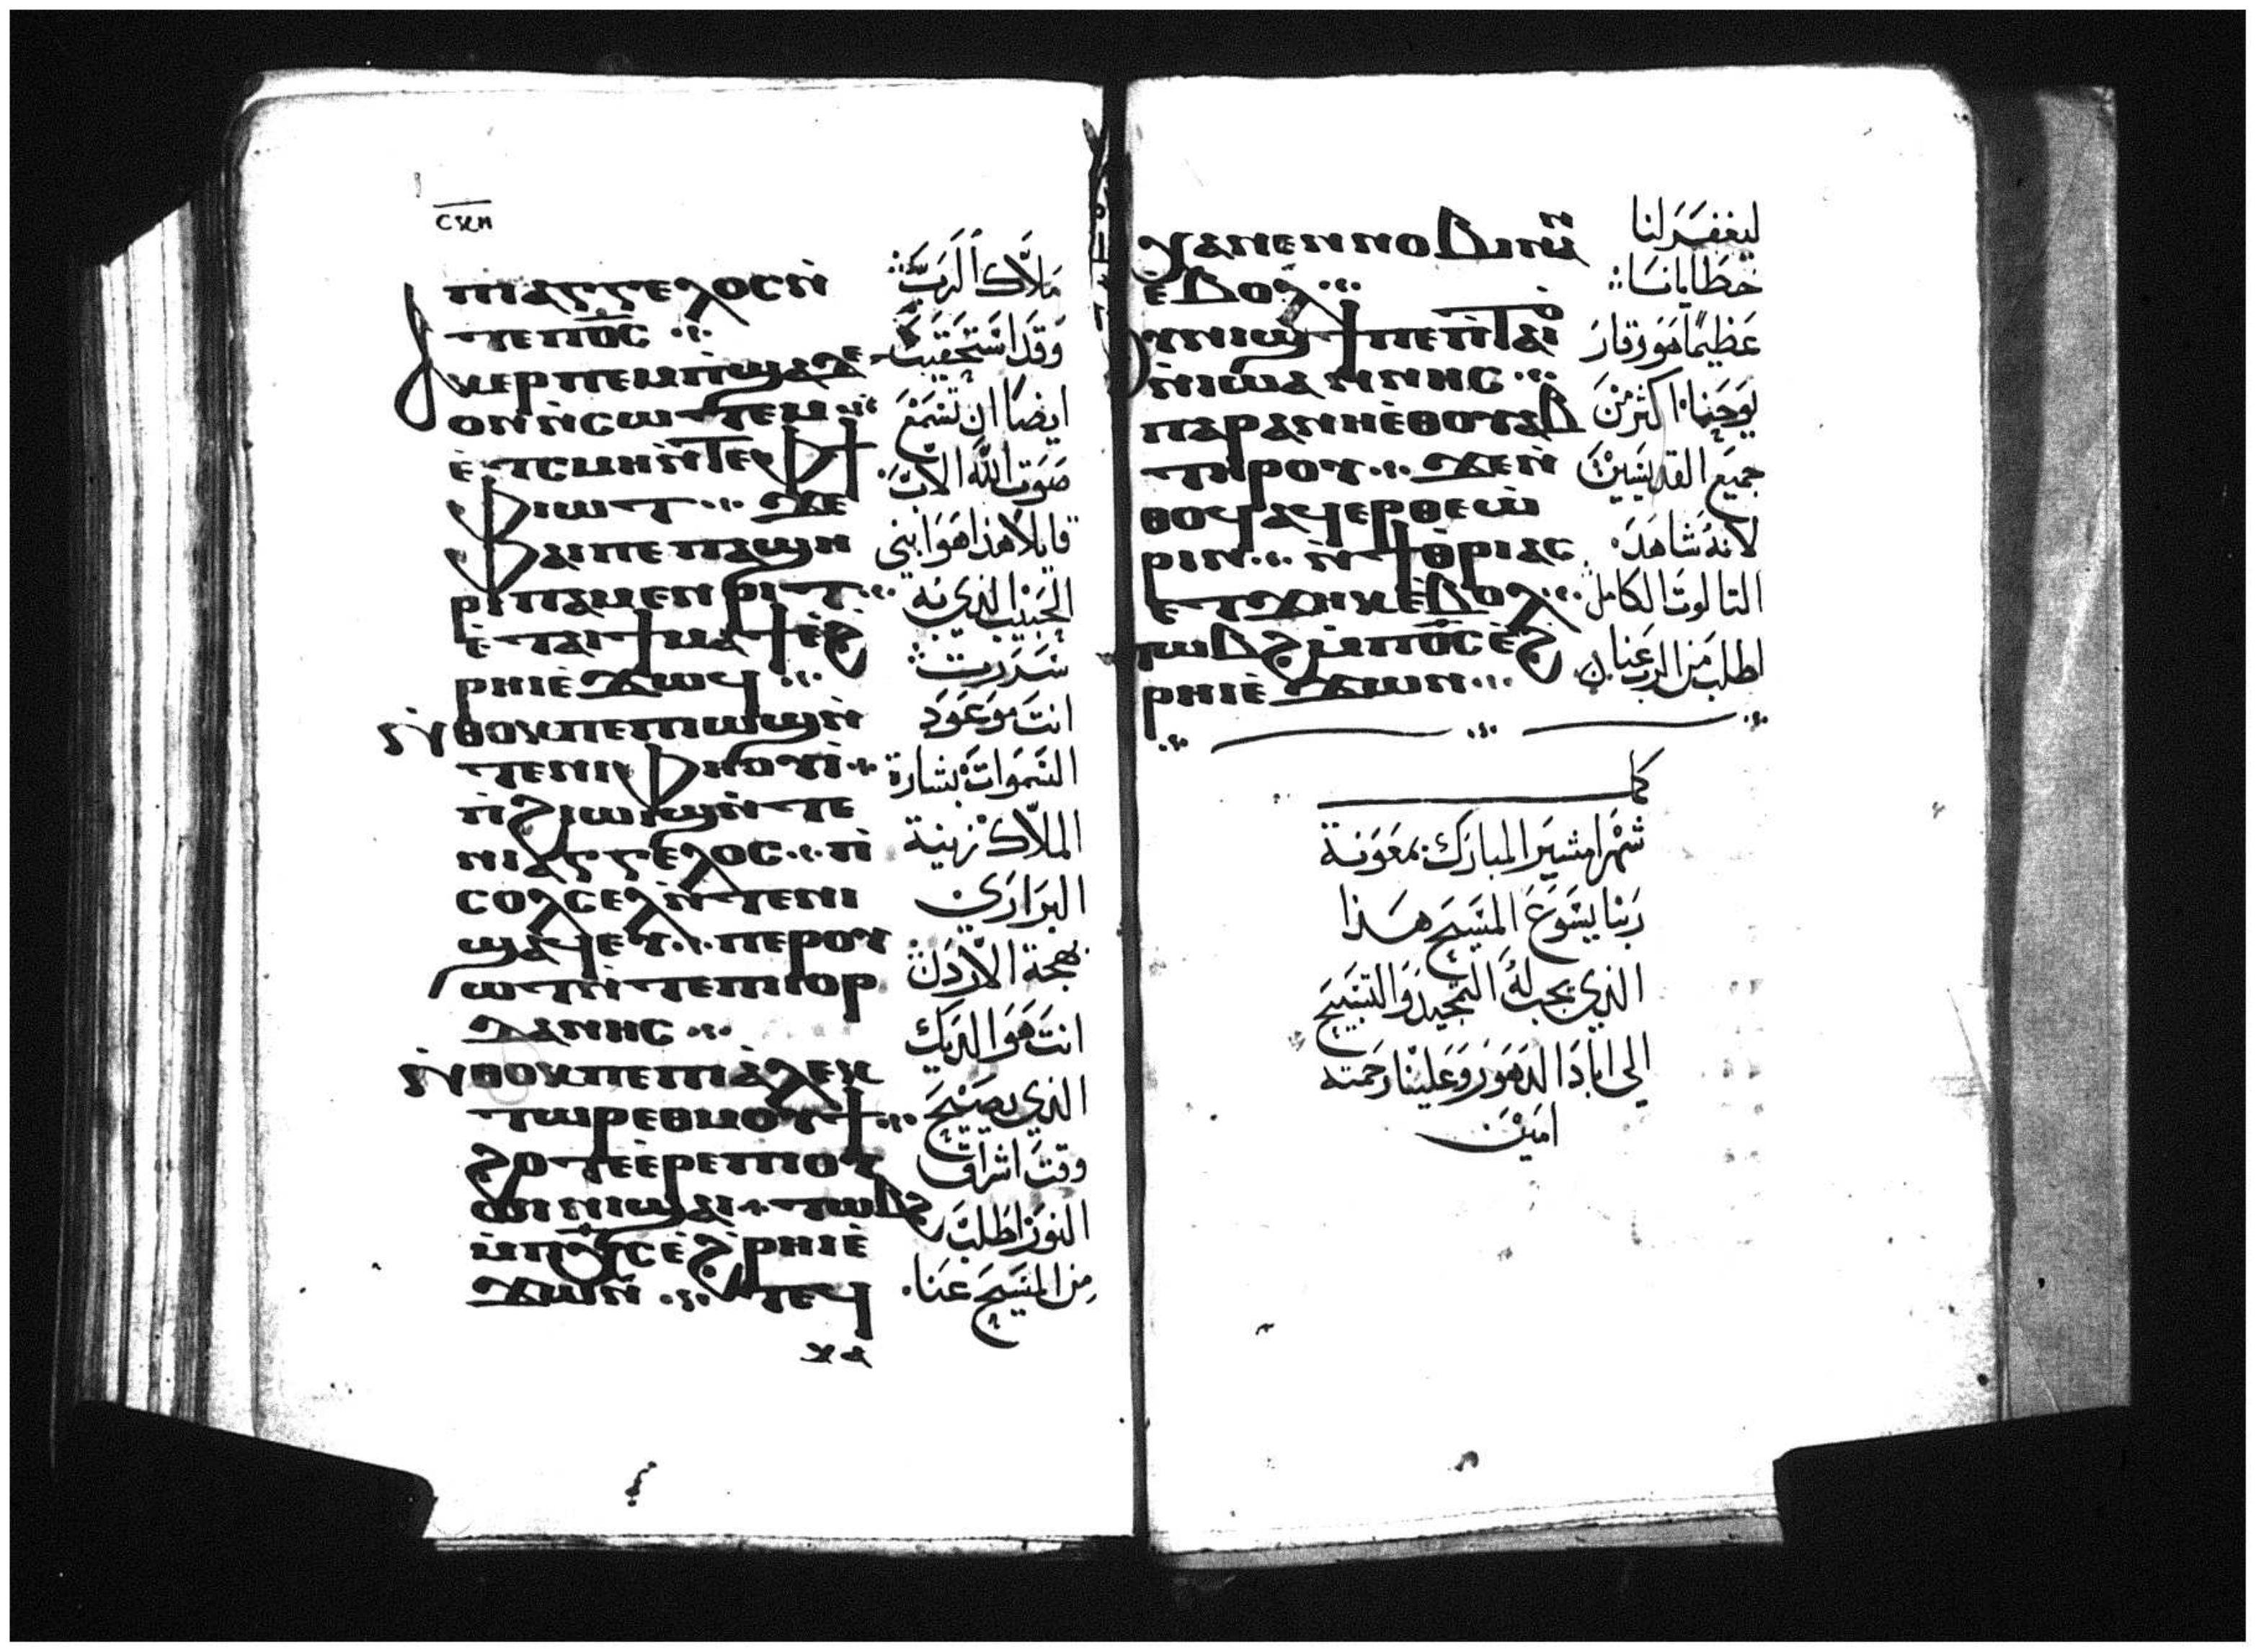 ⲡⲓⲁⲅⲅⲉⲗⲟⲥⲛ̀
ⲧⲉⲡ⳪
ⲕⲉⲣⲡⲉⲙⲡ̀ϣⲁⲇⲉ
ⲟⲛⲛ̀ⲥⲱⲧⲉⲙ
ⲉ̀ⲧⲥⲙⲏⲛ̀ⲧⲉⲫϯ
ⲫⲓⲱⲧ ϫⲉ
ⲫⲁⲓⲡⲉⲡⲁϣⲏ
ⲣⲓⲡⲁⲙⲉⲛⲣⲓⲧ
ⲉ̀ⲧⲁⲓϯⲙⲁϯⲉ̀ϩ
ⲣⲏⲓⲉ̀ϫⲱϥ
ⲛ̀ⲑⲟⲕⲡⲉⲡⲓⲱϣⲛ̀
ⲧⲉⲛⲓⲫⲏⲟⲩⲓ̀
ⲡ̀ϩⲓⲱⲓϣⲛ̀ⲧⲉ
ⲛⲓⲁⲅⲅⲉⲗⲟⲥ ⲡ̀
ⲥⲟⲗⲥⲉⲗⲛ̀ⲧⲉⲛⲓ
ϣⲁϥⲉⲩ ⲡⲉⲣⲟⲩ
ⲱⲧⲛ̀ⲧⲉⲡⲓⲓⲟⲣ
ⲇⲁⲛⲏⲥ
ⲛ̀ⲑⲟⲕⲡⲉⲡⲓⲁ̀ⲗⲉⲕ
ⲧⲱⲣⲉⲑⲙⲟⲩϯ
ϩⲟⲧⲉⲉ̀ⲣⲉⲡⲓⲟⲩ
ⲱⲓⲛⲓϣⲁⲓ ⲧⲱⲃϩ
ⲙ̀ⲡⲭ̅ⲥ̅ⲉ̀ϩ̀ⲣⲏⲓⲉ̀
ϫⲱⲛ ⲛ̀ⲧⲉϥ
ⲭⲁ
ملاك الرب
وقد استحقيت
ايضا ان تسمع
صوت الله الاب
قايلا هذا هو ابني
الحبيب الذي به
سررت
انت موعود
السموات بشارة
الملاك زينة
البراري
بهجة الاردن
انت هو الديك
الذي يصيح
وقت اشراق
النور اطلب
من المسيح عنا
ⲭⲁⲛⲉⲛⲛⲟⲃⲓⲛⲁⲛ
ⲉ̀ⲃⲟⲗ
ⲟⲩⲛⲓϣϯⲡⲉⲡ̀ⲧⲁⲓⲟ
ⲛ̀ⲓⲱⲁⲛⲛⲏⲥ
ⲡⲁⲣⲁⲛⲏⲉ̀ⲑⲟⲩⲁⲃ
ⲧⲏⲣⲟⲩ ϫⲉⲛ̀
ⲑⲟϥⲁϥⲉⲣⲑⲉⲱ̀
ⲣⲓⲛ ⲛ̀ϯⲑ̀ⲣⲓⲁⲥ
ⲉⲧϫⲏⲕⲉ̀ⲃⲟⲗ
ⲧⲱⲃϩⲙ̀ⲡ⳪ⲉ̀ϩ
ⲣⲏⲓⲉ̀ϫⲱⲛ
ليغفر لنا
خطايانا
عظيما هو وقار
يوحنا اكثر من
جميع القديسين
لانه شاهد
التالوت الكامل
اطلب من الرب عنا
كمل
شهر امشير المبارك بمعونة
ربنا يسوع المسيح هذا
الذي يجب له التمجيد والتسبيح
الى اباد الدهور وعلينا رحمته
امين